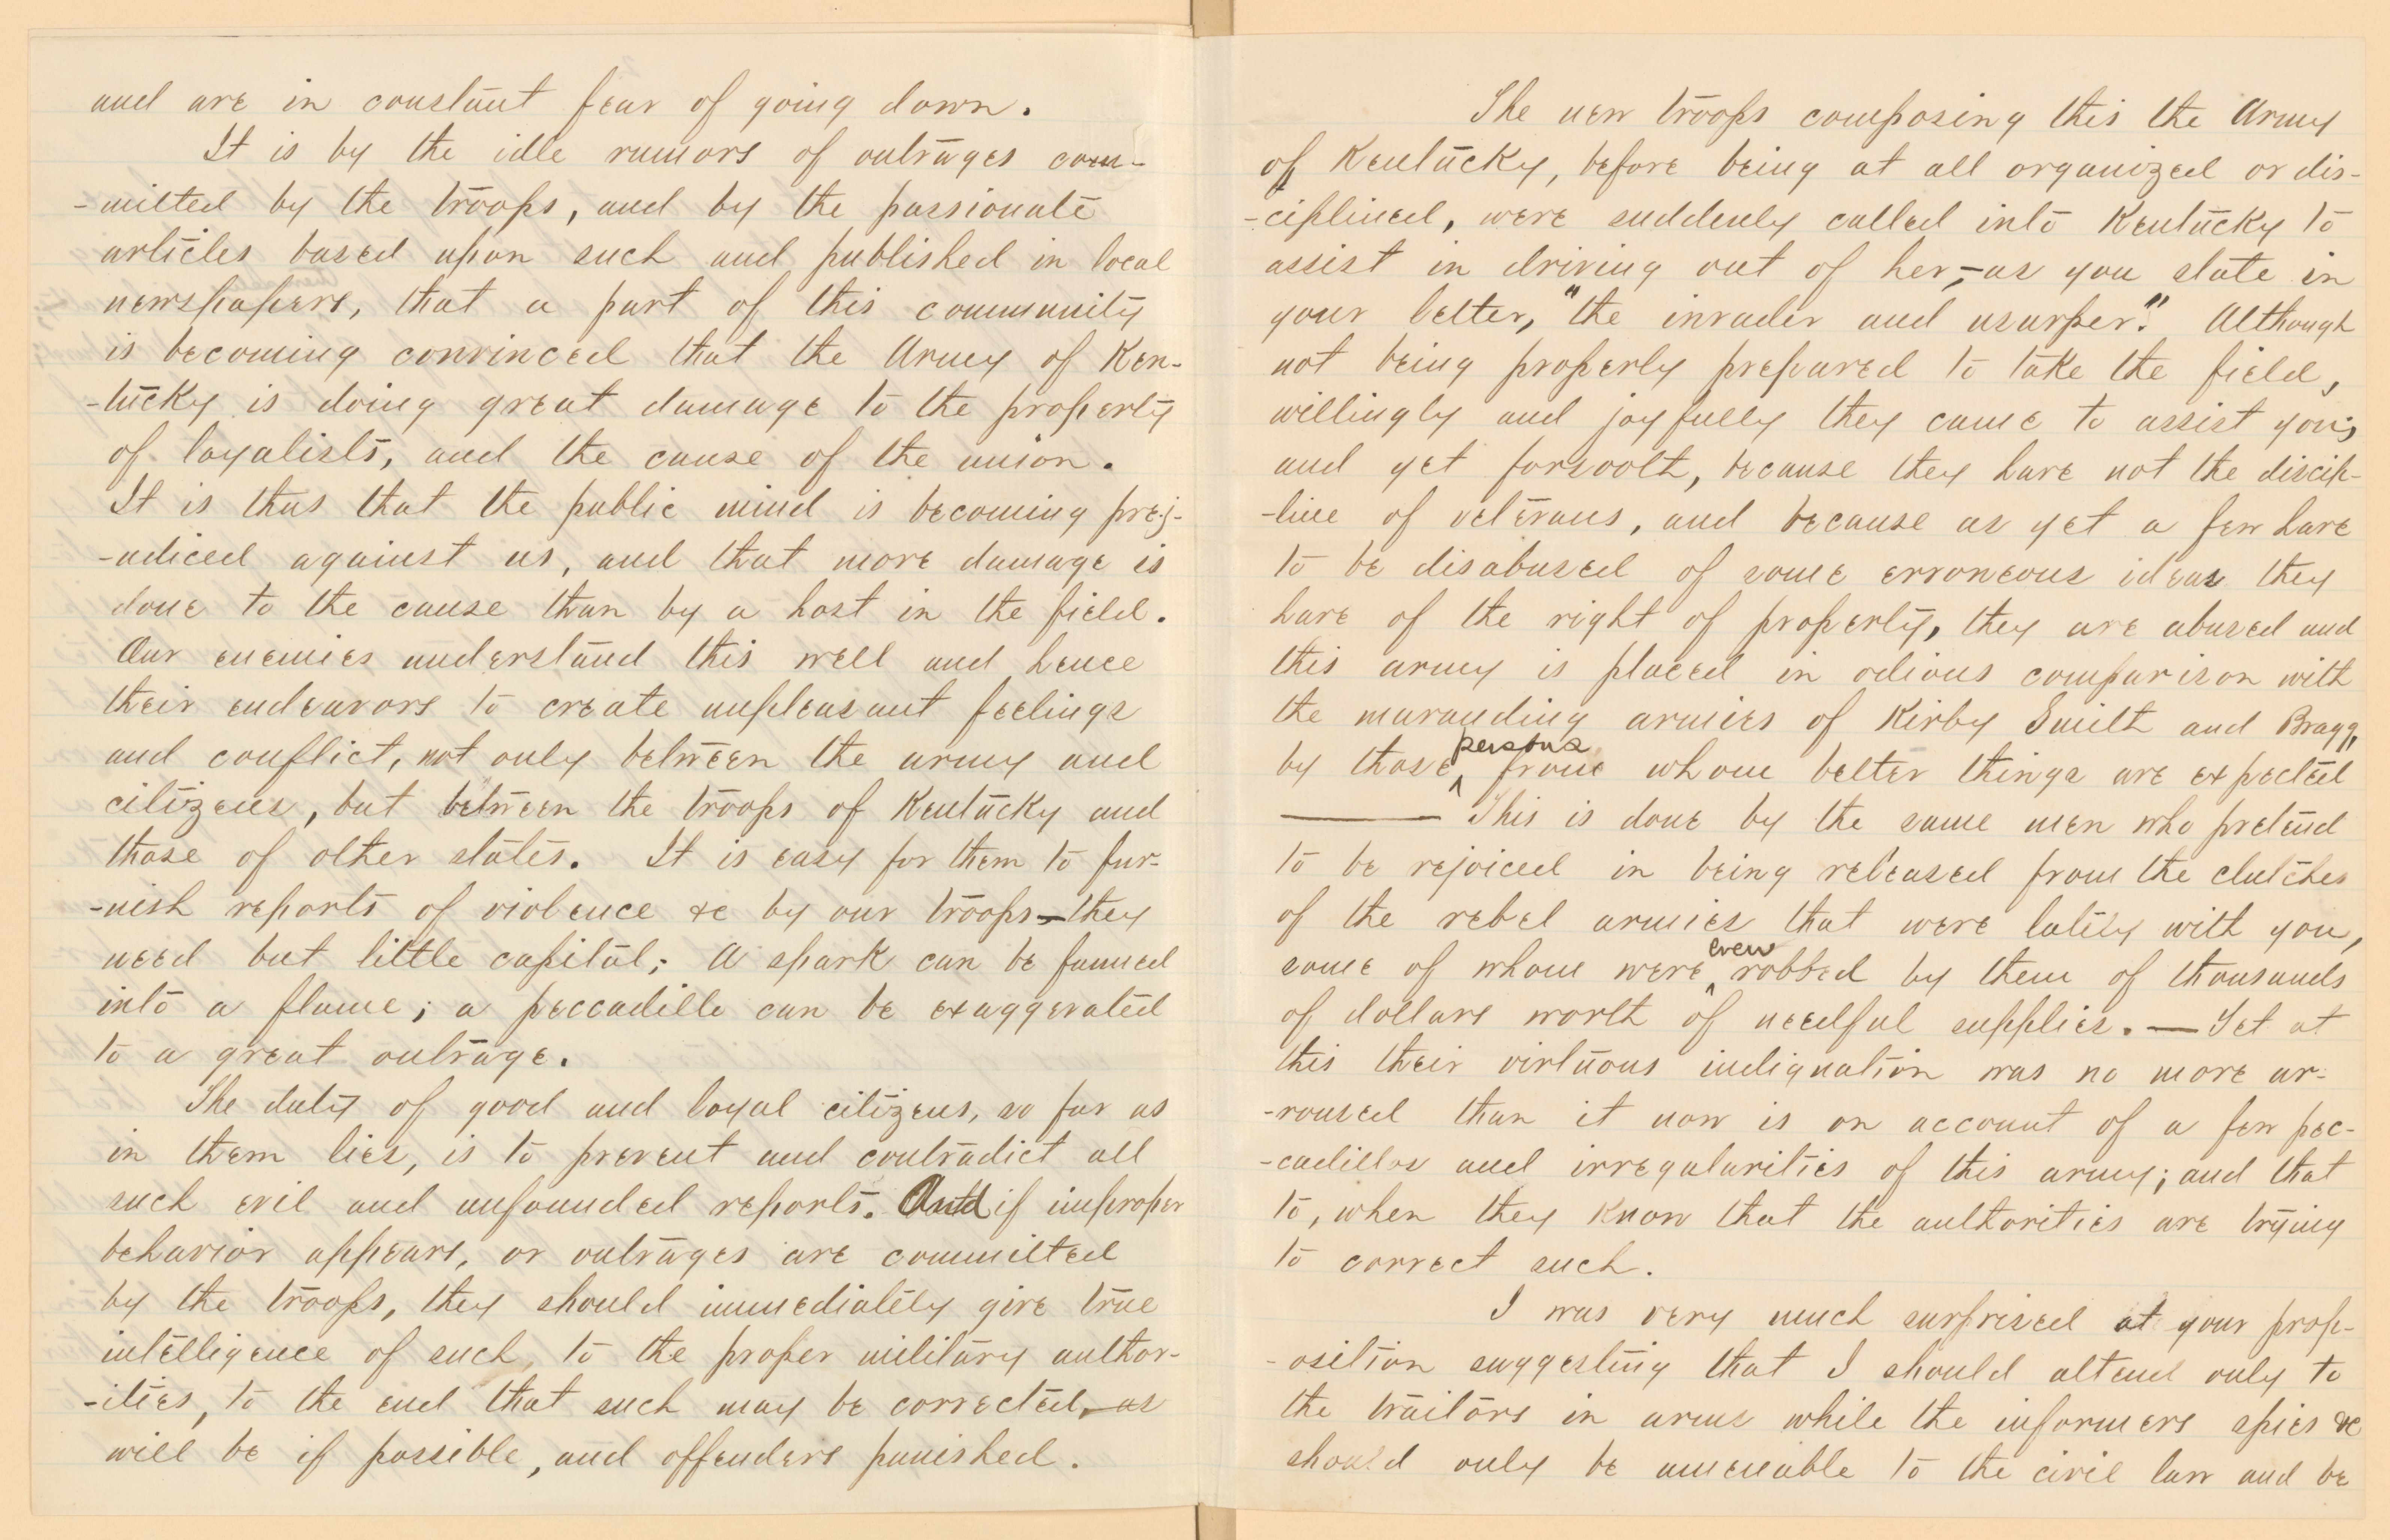 and are in constant fear of going down.
It is by the idle rumors of outrages com-
-mitted by the troops, and by the passionate
articles based upon such and published in local
newspapers, that a part of this community
is becoming convinced that the Army of Ken-
-tucky is doing great damage to the property
of loyalists, and the cause of the union.
It is thus that the public mind is becoming prej-
-udiced against us, and that more damage is
done to the cause than by a host in the field.
Our enemies understand this well and hence
their endeavors to create unpleasant feelings
and conflict, not only between the army and
citizens, but between the troops of Kentucky and
those of other states. It is easy for them to fur-
-nish reports of violence &c by our troops — they
need but little capital; A spark can be fanned
into a flame; a peccadillo can be exaggerated
to a great outrage.
The duty of good and loyal citizens, so far as
in them lies, is to prevent and contradict all
such evil and unfounded reports. And if improper
behavior appears, or outrages are committed
by the troops, they should immediately give true
intelligence of such, to the proper military author-
-ities, to the end that such may be corrected, — as
will be if possible, and offenders punished.
The new troops composing this the Army
of Kentucky, before being at all organized or dis-
-ciplined, were suddenly called into Kentucky to
assist in driving out of her, — as you state in
your letter, "the invader and usurper." Although
not being properly prepared to take the field,
willingly and joyfully they came to assist you;
and yet forsooth, because they have not the discip-
-line of veterans, and because as yet a few have
to be disabused of some erroneous ideas they
have of the right of property, they are abused and
this army is placed in odious comparison with
the marauding armies of Kirby Smith and Bragg,
by those persons from whom better things are expected
— This is done by the same men who pretend
to be rejoiced in being released from the clutches
of the rebel armies that were lately with you,
some of whom were even robbed by them of thousands
of dollars worth of needful supplies. — Yet at
this their virtuous indignation was no more ar-
-roused than it now is on account of a few pec-
-cadillos and irregularities of this army; and that
to, when they know that the authorities are trying
to correct such.
I was very much surprised at your prop-
-osition suggesting that I should attend only to
the traitors in arms while the informers spies &c
should only be amenable to the civil law and be